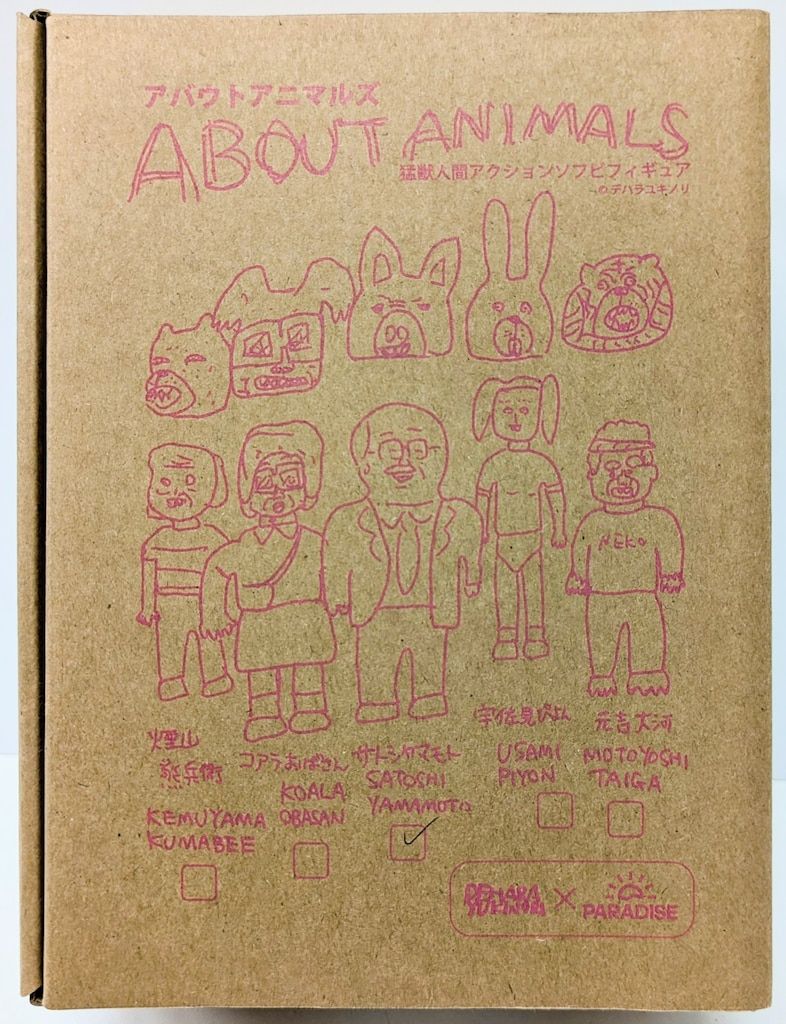 アバウトアニマルズ
ABOUT ANIMALS
猛獣人間アクションソフビフィギュア
デハラユキノリ
NEKO
煙山
熊兵衛
KEMUYAMA
KUMABEE
コアラおばさん
KOALA
OBASAN
サトシヤマモト
SATOSHI
YAMAMOTO
宇佐見ぴょん
USAMI
PIYON
元吉大河
MOTOYOSHI
TAIGA
DEHARA YUKINORI × PARADISE